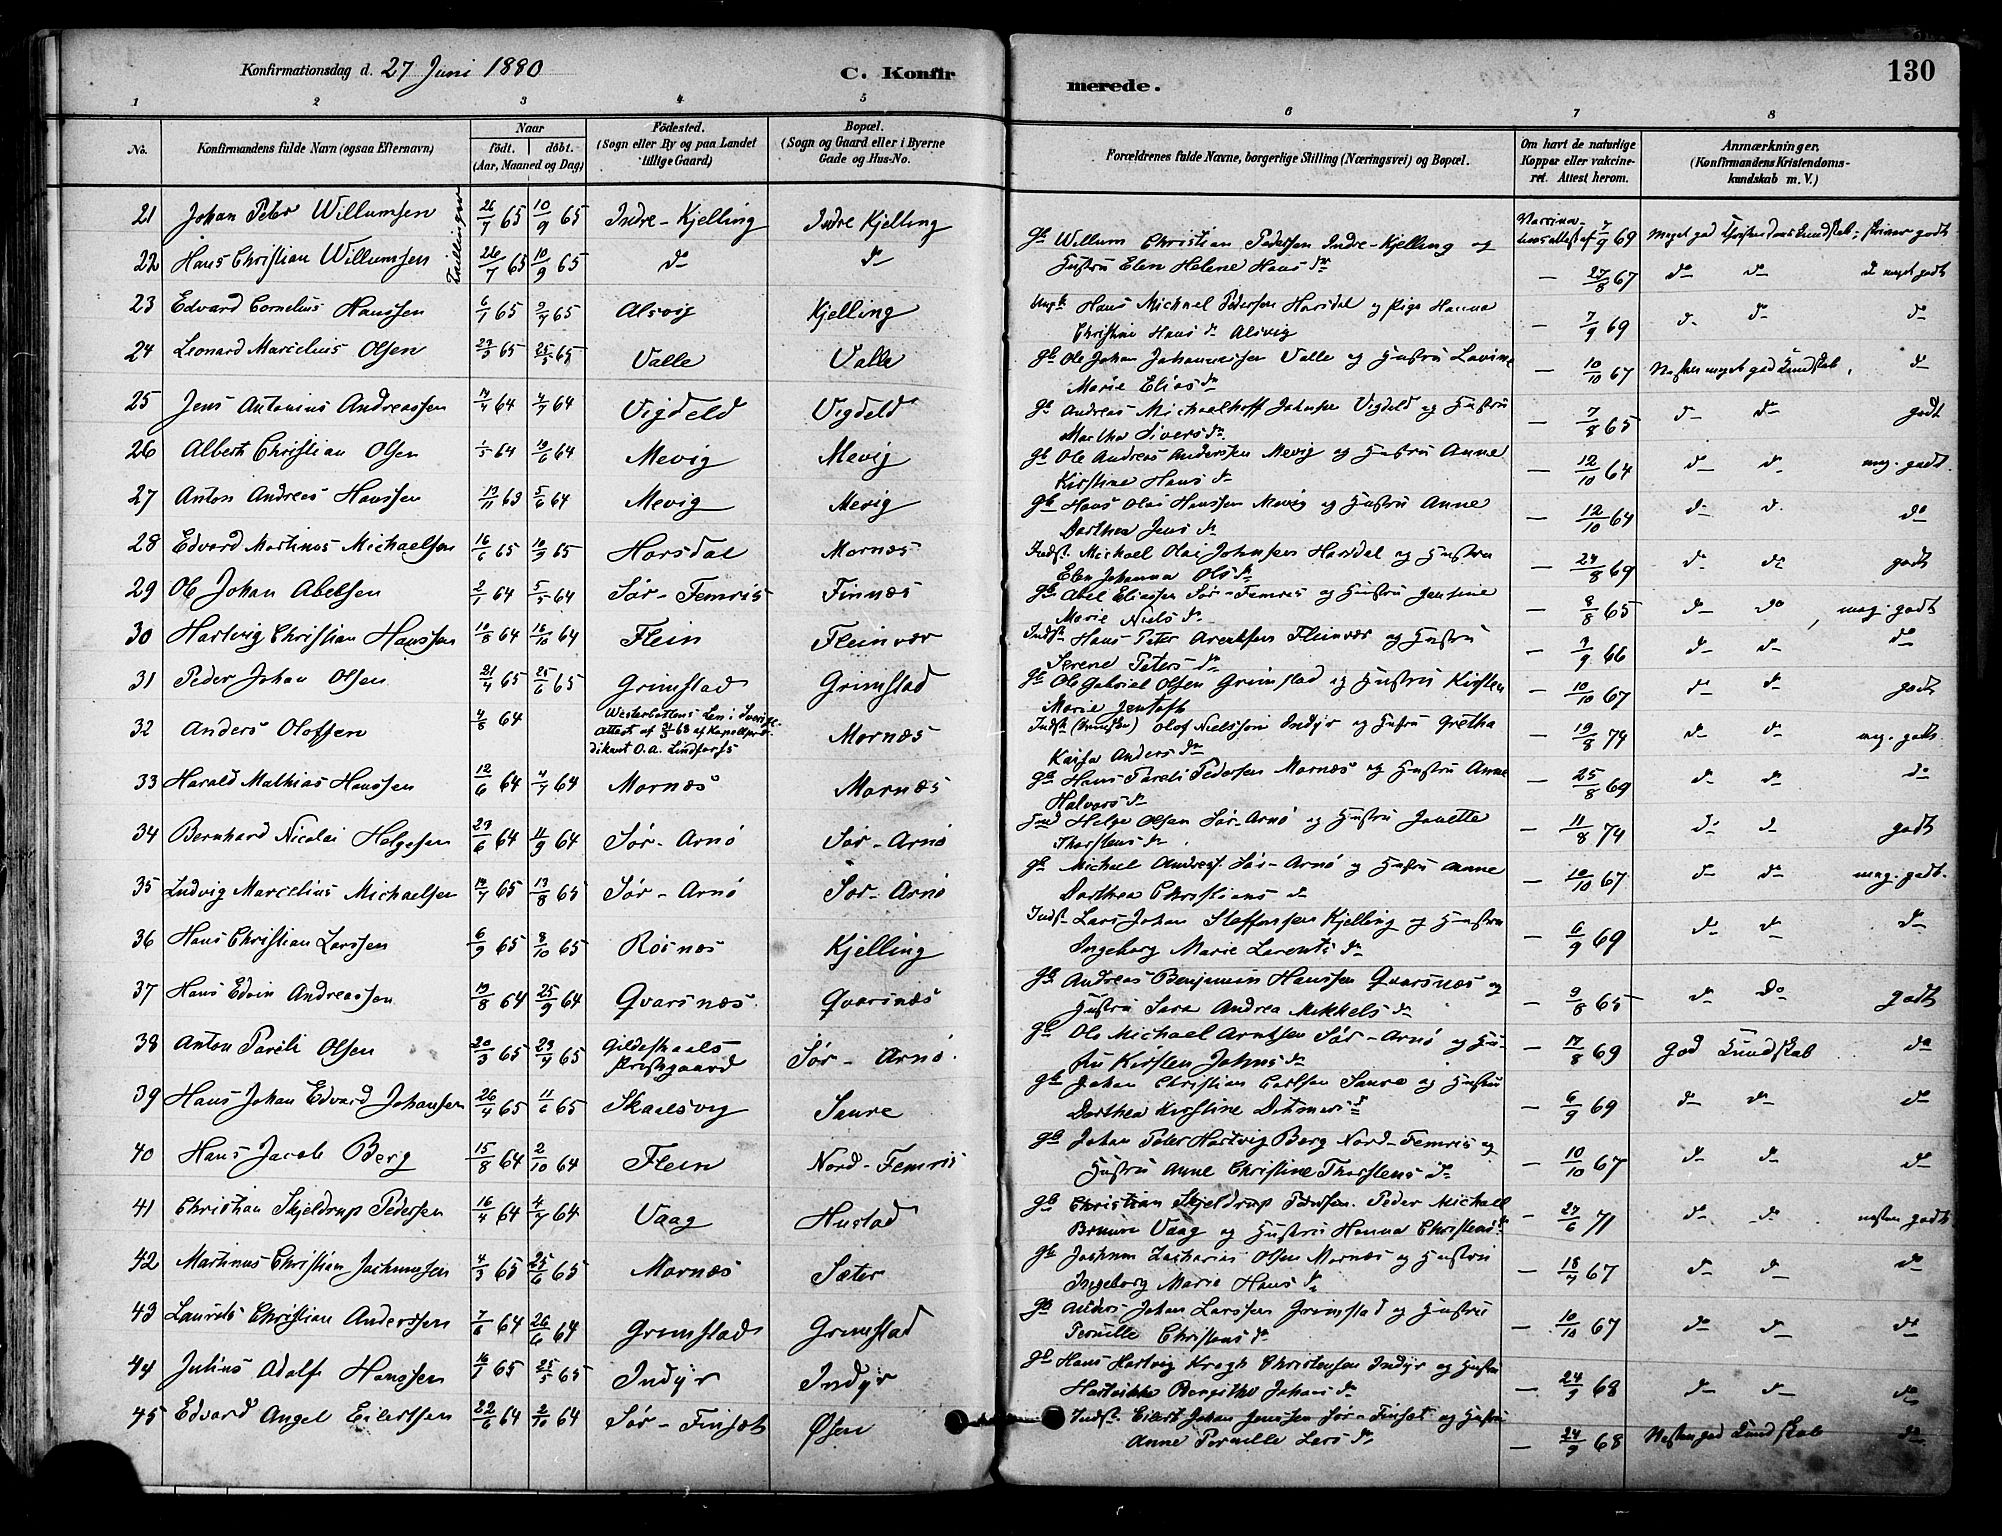 Konfirmationsdag d. 27 Juni 1880
C. Konfir
merede.
130
1 2 3 4 5 6 7 8
No.
Konfirmandens fulde Navn (ogsaa Efternavn)
Naar
födt. döbt.
(Aar, Maaned og Dag)
Födested.
(Sogn eller By og paa Landet
tillige Gaard)
Bopæl.
(Sogn og Gaard eller i Byerne
Gade og Hus-No.
Forældrenes fulde Navne, borgerlige Stilling (Næringsvei) og Bopæl.
Om havt de naturlige
Kopper eller vakcine-
ret. Attest herom.
Anmærkninger.
(Konfirmandens Kristendoms-
kundskab m. V.)
21 Johan Peter Willumsen 26/7 65 10/9 65 Indre-Kjelling Indre Kjelling
Gb Willum Christian Pedersen Indre-Kjelling og
Hustru Elen Helene Hans dr 7/9 69 Meget god Christendomskundskab; skriver godt
Tvillinger
22 Hans Christian Willumsen 26/7 65 10/9 65 do do — 27/8 67 do do do meget godt
23 Edvard Cornelius Hanssen 6/1 65 2/7 65 Alsvig Kjelling
Ungk Hans Michael Pedersen Horsdal og Pige Hanna
Christine Hans dr Alsvig — 7/9 69 do do do
24 Leonard Marcelius Olsen 65 65 Valle Valle
Gb Ole Johan Johannessen Valle og Hustru Lovine
Marie Elias dr — 10/10 67 Næsten meget god Kundskab. do
25 Jens Antonius Andreassen 64 64 Vigdeld Vigdeld
Gb Andreas Michaelhoff Johnsen Vigdeld og Hustru
Martha Sivers dr. — 7/8 65 do do godt
26 Albert Christian Olsen 1/5 64 19/6 64 Mevig Mevig
Gb Ole Andreas Andersen Mevig og Hustru Anne
Kirstine Hans dr — 12/10 64 do do meg. godt.
27 Anton Andreas Hanssen 13/11 63 5/6 64 Mevig Mevig
Gb Hans Olai Hanssen Mevig og Hustru Anne
Dorthea Jens dr — 12/10 64 do do do
28 Edvard Martinus Michaelsen 16/6 65 10/9 65 Horsdal Mornæs
Indst. Michael Olai Johnsen Horsdal og Hustru
Elen Johanna Ols dr — 24/8 69 do do godt
29 Ole Johan Abelsen 2/1 64 5/5 64 Sør-Femris Finnæs
Gb Abel Eliassen Sør-Femris og Hustru Jensine
Marie Niels dr — 8/8 65 do do meg. godt
30 Hartvig Christian Hanssen 10/8 64 16/10 64 Flein Fleinvær
Indst. Hans Peter Arentsen Fleinvær og Hustru
Serene Peters dr — 3/9 66 do do do
31 Peder Johan Olsen 21/4 65 25/6 65 Grimstad Grimstad
Gb Ole Gabriel Olsen Grimstad og Hustru Kirsten
Marie Jentoft — 10/10 67 do do godt
32 Anders Oloffsen 4/8 64 Westerbottens Len i Sverige.
Attest af 68 af Kapellpræ-
dikant O. A. Lindfors Mornæs
Indst (Svensker) Olof Nielsson Indyr og Hustru Gretha
Kaisa Anders dr — 19/8 74 do do meg. godt.
33 Harald Mathias Hanssen 12/6 64 4/7 64 Mornæs Mornæs
Gb Hans Pareli Pedersen Mornæs og Hustru Anne
Halvors dr — 25/8 69 do do do
34 Bernhard Nicolai Helgesen 23/6 64 11/9 64 Sør-Arnö Sør-Arnö
Ind Helge Olsen Sør-Arnö og Hustru Janette
Thorstens dr. — 11/8 74 do do godt
35 Ludvig Marcelius Michaelsen 65 13/8 65 Sør-Arnö Sør-Arnö
Gb Michael Andreas. Sør-Arnö og Hustru Anne
Dorthea Christians dr — 10/10 67 do do meg. godt.
36 Hans Christian Larssen 6/9 65 8/10 65 Röisnæs Kjelling
Indst. Lars Johan Steffensen Kjelling og Hustru
Ingeborg Marie Lorents dr — 6/9 69 do do do
37 Hans Edvin Andreassen 19/8 64 25/9 64 Qvarsnæs. Qvarsnæs
Gb Andreas Benjamin Hanssen Qvarsnæs og
Hustru Sara Andrea Mikkels dr — 9/8 65 do do godt
38 Anton Pareli Olsen 20/3 65 23/4 65 Gildeskaals
Præstegaard Sør-Arnö.
Gb Ole Michael Arntsen Sør-Arnö og Hu-
stru Kirsten Johns dr — 17/8 69 God Kundskab do
39 Hans Johan Edvard Johansen 26/4 65 11/6 65 Skaalsvig Saure
Gb Johan Christian Carlsen Saure og Hustru
Dorthea Kirstine Ditmars dr — 6/9 69 do do do
40 Hans Jacob Berg 15/8 64 2/10 64 Flein Nord-Femris
Gb Johan Peter Hartvig Berg Nord-Femris og
Hustru Anne Christine Thorstens dr — 10/10 67 do do do
41 Christian Skjeldrup Pedersen 16/4 64 4/7 64 Vaag Hustad
Gb Christian Skjeldrup Pedersen. Peder Michael
Vaag og Hustru Hanna Christens dr — 27/6 71 do do næsten godt
42 Martinus Christian Jochumsen 4/3 65 25/6 65 Mornæs Sæter
Gb Jochum Zacharias Olsen Mornæs og Hustru
Ingeborg Marie Hans dr — 18/7 67 do do do
43 Laurits Christian Anderssen 7/6 64 26/6 64 Grimstad Grimstad
Gb Anders Johan Larssen Grimstad og Hustru
Pernille Christens dr — 10/10 67 do do do
44 Julius Adolf Hanssen 16/1 65 25/5 65 Indyr Indyr
Gb Hans Hartvig Krogh Christensen Indyr og Hustru
Hartvikke Bergitha Johans dr — 24/9 68 do do do
45 Edvard Angel Eilertsen 22/6 64 2/10 64 Sør-Finsæt Øsen
Indst. Eilert Johan Jenssen Sør-Finsæt og Hustru
Anne Pernille Lars dr — 24/9 68 Næsten god Kundskab do